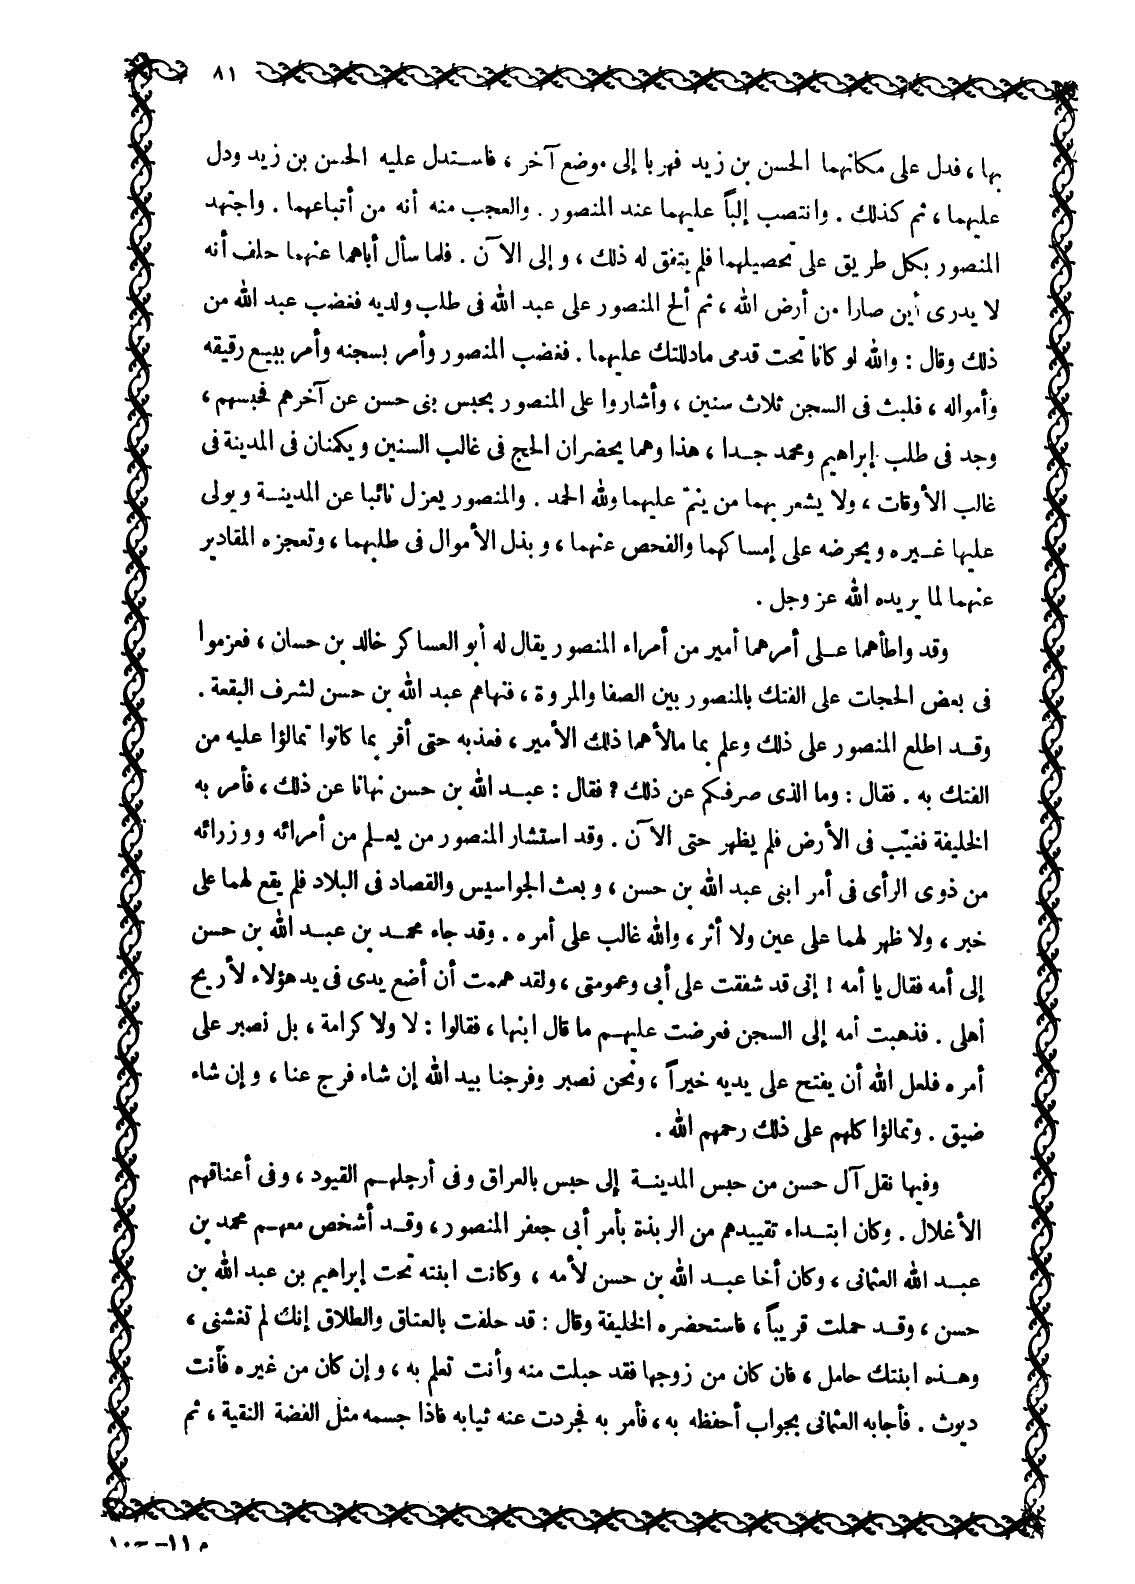 ٨١
بها ، فدل على مكانهما الحسن بن زيد فهربا إلى موضع آخر ، فاستدل عليه الحسن بن زيد ودل
عليهما ، ثم كذلك . وانتصب إلباً عليهما عند المنصور . والعجب منه أنه من أتباعهما . واجتهد
المنصور بكل طريق على تحصيلهما فلم يتفق له ذلك ، و إلى الآن . فلما سأل أباهما عنهما حلف أنه
لا يدرى أين صارا من أرض الله ، ثم ألح المنصور على عبد الله فى طلب ولديه فغضب عبد الله من
ذلك وقال : والله لو كانا تحت قدمى مادللتك عليهما . فغضب المنصور وأمر بسجنه وأمر ببيع رقيقه
وأمواله ، فلبث فى السجن ثلاث سنين ، وأشاروا على المنصور بحبس بنى حسن عن آخرهم فحبسهم ،
وجد فى طلب إبراهيم ومحمد جدا ، هذا وهما يحضران الحج فى غالب السنين و يكمنان فى المدينة فى
غالب الأوقات ، ولا يشعر بهما من ينمّ عليهما ولله الحمد . والمنصور يعزل نائبا عن المدينة و يولى
عليها غيره و يحرضه على إمساكهما والفحص عنهما ، و بذل الأموال فى طلبهما ، وتعجزه المقادير
عنهما لما يريده الله عز وجل .
وقد واطأهما على أمرهما أمير من أمراء المنصور يقال له أبو العساكر خالد بن حسان ، فعزموا
فى بعض الحجات على الفتك بالمنصور بين الصفا والمروة ، فنهاهم عبد الله بن حسن لشرف البقعة .
وقد اطلع المنصور على ذلك وعلم بما مالأهما ذلك الأمير ، فعذبه حتى أقر بما كانوا تمالؤا عليه من
الفتك به . فقال : وما الذى صرفكم عن ذلك ? فقال : عبد الله بن حسن نهانا عن ذلك ، فأمر به
الخليفة فغيّب فى الأرض فلم يظهر حتى الآن . وقد استشار المنصور من يعلم من أمرائه ووزرائه
من ذوى الرأى فى أمر ابنى عبد الله بن حسن ، و بعث الجواسيس والقصاد فى البلاد فلم يقع لهما على
خبر ، ولا ظهر لهما على عين ولا أثر ، والله غالب على أمره . وقد جاء محمد بن عبد الله بن حسن
إلى أمه فقال يا أمه ! إنى قد شفقت على أبى وعمومتى ، ولقد هممت أن أضع يدى فى يد هؤلاء لأريح
أهلى . فذهبت أمه إلى السجن فعرضت عليهم ما قال ابنها ، فقالوا : لا ولا كرامة ، بل نصبر على
أمره فلعل الله أن يفتح على يديه خيراً ، ونحن نصبر وفرجنا بيد الله إن شاء فرج عنا ، و إن شاء
ضيق . وتمالؤا كلهم على ذلك رحمهم الله .
وفيها نقل آل حسن من حبس المدينة إلى حبس بالعراق وفى أرجلهم القيود ، وفى أعناقهم
الأغلال . وكان ابتداء تقييدهم من الربذة بأمر أبى جعفر المنصور ، وقد أشخص معهم محمد بن
عبد الله العثمانى ، وكان أخا عبد الله بن حسن لأمه ، وكانت ابنته تحت إبراهيم بن عبد الله بن
حسن ، وقد حملت قريباً ، فاستحضره الخليفة وقال : قد حلفت بالعتاق والطلاق إنك لم تغشنى ،
وهذه ابنتك حامل ، فان كان من زوجها فقد حبلت منه وأنت تعلم به ، و إن كان من غيره فأنت
ديوث . فأجابه العثمانى بجواب أحفظه به ، فأمر به فجردت عنه ثيابه فاذا جسمه مثل الفضة النقية ، ثم
م ١١ – ج ١٠